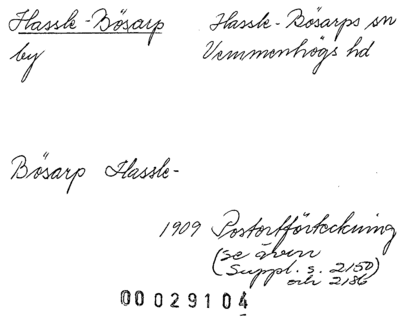 Hassle-Bösarp
by
Hassle-Bösarps sn
Vemmenhögs hd
Bösarp Hassle-
1909 Postortförteckning
(se även
Suppl. s. 2150)
och 2186
00 029104